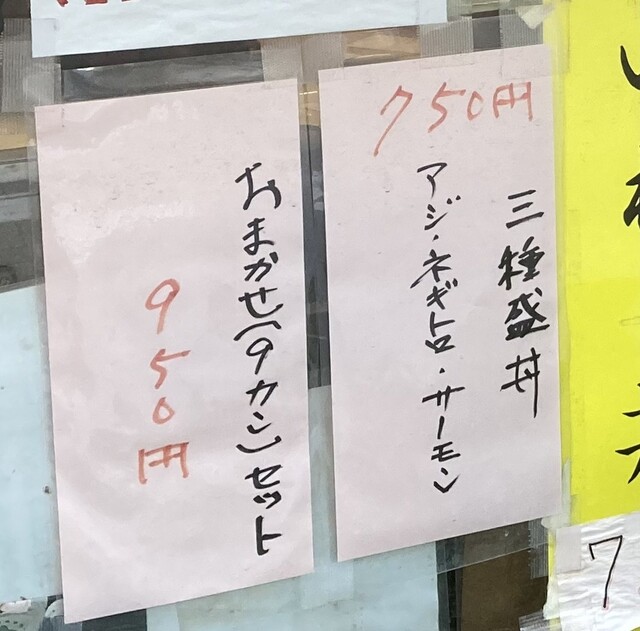 三種盛丼
アジ・ネギトロ・サーモン
750円
おまかせ(9カン)セット
950円
7